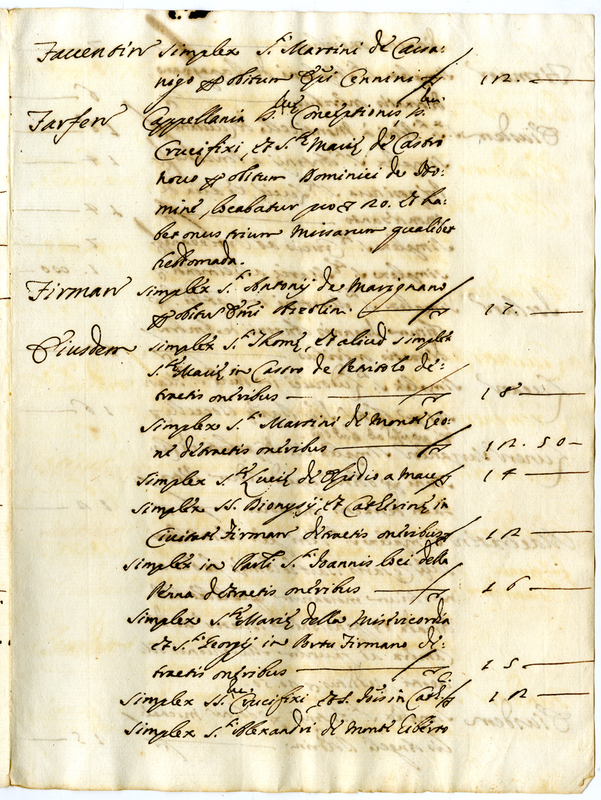 Fauentin Simplex S.ti Martini de Casa:
nigo p obitum Cennini 12.
Farfen Cappellania B. Conceptionis, S.
Crucifixi, et S.te Mariæ de Castro
nouo p obitum Dominici de
mine, locabatur 20. et ha:
bet onus trium Missarum qualibet
hebdomada.
Firman Simplex S.ti Antonij de Marignano
p obitu 17.
Eiusdem Simplex S.ti Thomę, et aliud simplex
S.te Marię in Castro de Peritolo de:
tractis oneribus 18
Simplex S.ti Martini de Monte Leo:
ne detractis oneribus 12.50
Simplex S.te Lucię de 14
Simplex SS. Dionysij, et Catherinę in
Ciuitate Firman detractis oneribus 12
Simplex in S.ti Ioannis loci della
Penna detractis oneribus 16
Simplex S.te Marię della Misericordia
et S.ti Georgij in Portu Firmano de:
tractis oneribus 15
Simplex SS. Crucifixi, et S. in 12
Simplex S.ti Alexandri de Monte Giberto